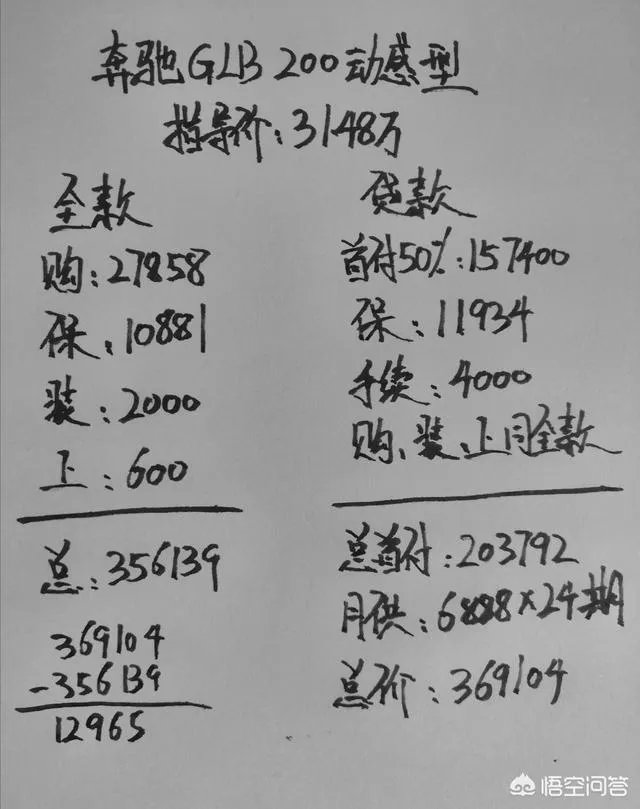 奔驰GLB 200动感型
指导价:31.48万
全款
购:27858
保:10881
装:2000
上:600
总:356139
369104
-356139
12965
贷款
首付50%:157400
保:11934
手续:4000
购、装、上同全款
总首付:203792
月供:6888×24期
总价:369104
悟空问答